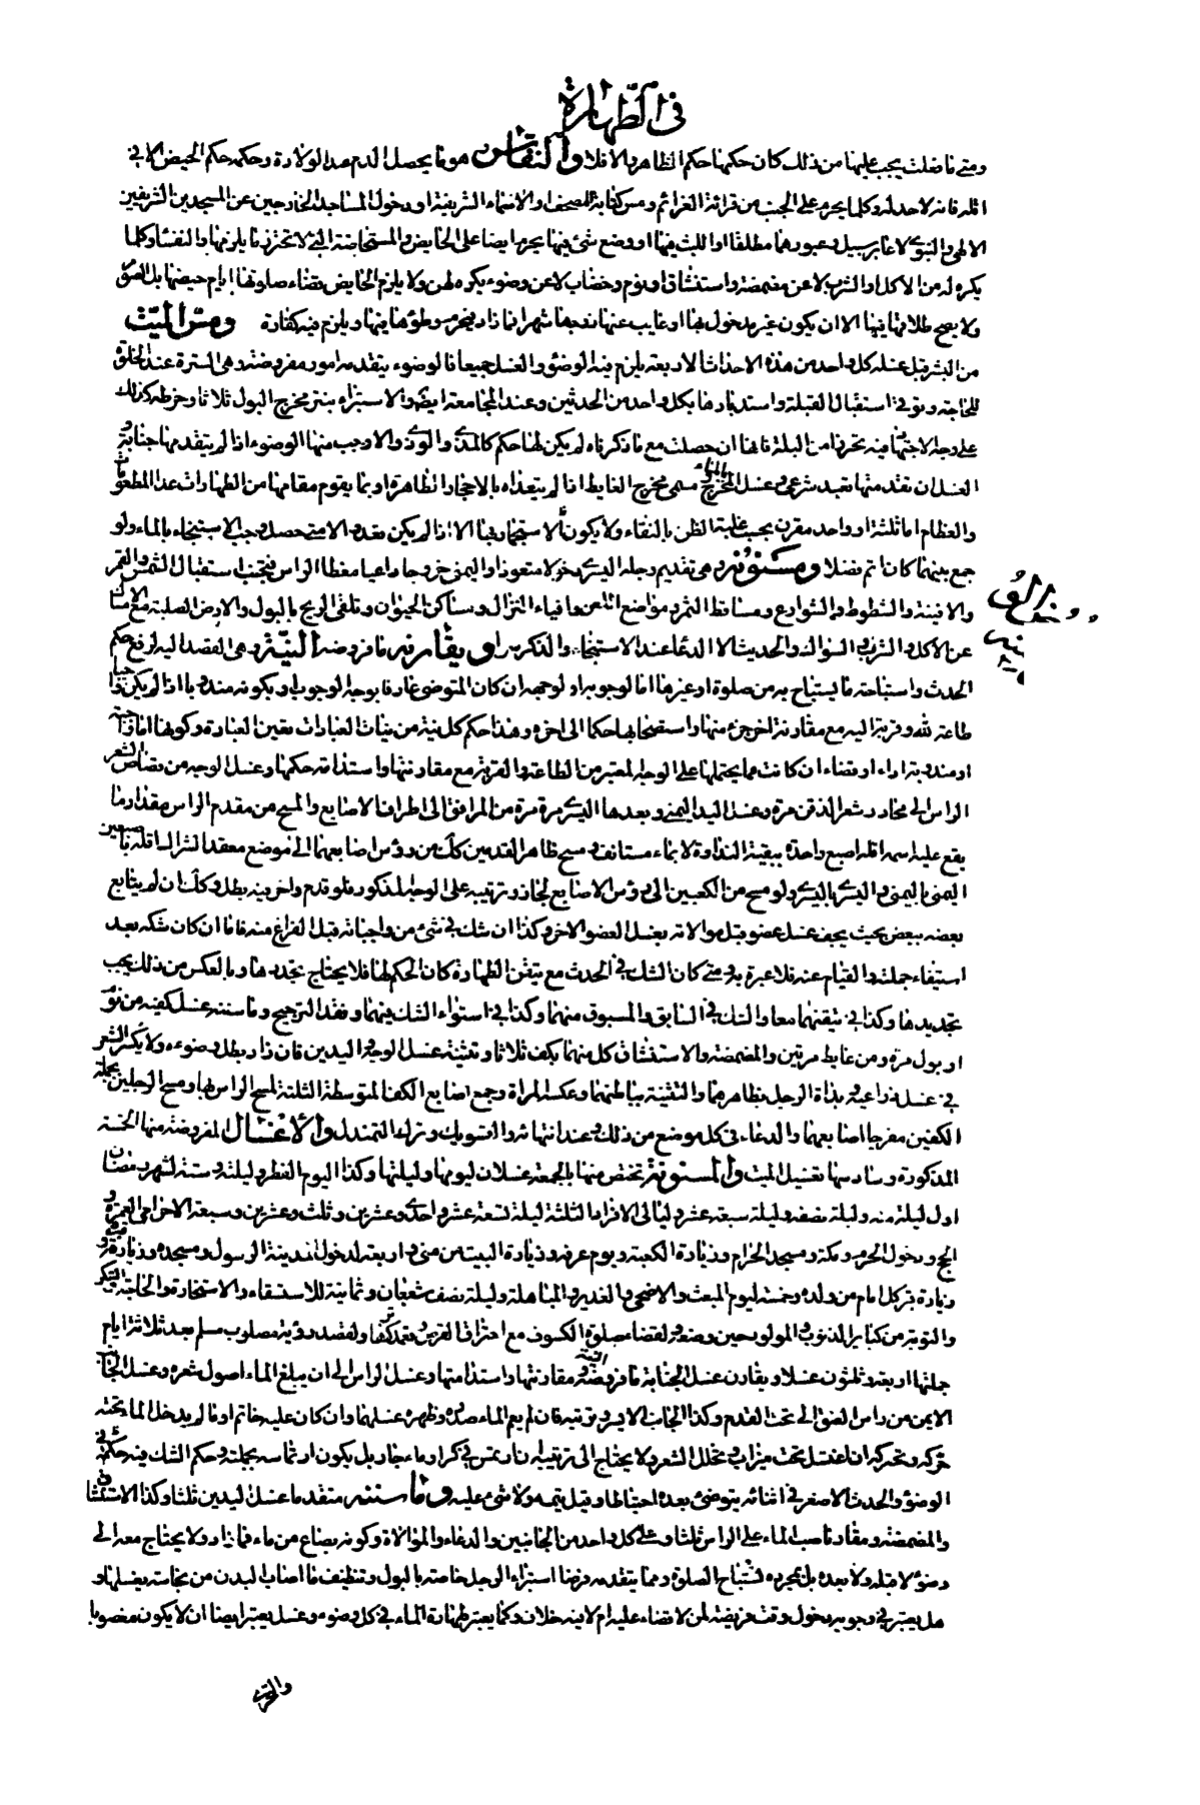 في الطهارة
ومتى ما فعلت يجب عليها من ذلك كان حكمها حكم الطاهر والا فلا والنفاس هو ما يحصل الدم عند الولادة وحكمه حكم الحيض الا في
اقله فانه لا حد له وكلما يحرم على الجنب من قرائة العزائم ومس كتابة المصحف والاسماء الشريفة او دخول المساجد الخارجين عن المسجدين الشريفين
الالهي والنبوي لا عابر سبيل وعبورهما مطلقا او اللبث فيها او وضع شيء فيها يحرم ايضا على الحايض والمستحاضة التي لا تحترز ما يلزمها والنفساء وكلما
يكره له من الاكل والشرب لا عن مضمضة واستنشاق ونوم وخضاب لا عن وضوء يكره لهن ولا يلزم الحايض قضاء صلوتها ايام حيضها بل الصوم
ولا يصح طلاقها فيها الا ان يكون غير مدخول بها او غايب عنها زوجها شهرا فما زاد ويحرم وطؤها فيها ويلزم فيه كفارة ومس الميت
من البشر قبل غسله كل واحد من هذه الاحداث الاربعة يلزم فيه الوضوء والغسل جميعا فالوضوء يتقدمه امور مفروضة وهي السترة عند الخلوة
للحاجة وتوقي استقبال القبلة واستدبارها بكل واحد من الحدثين وعند المجامعة ايضا والاستبراء بنتر مخرج البول ثلاثا وخرطه كذلك
على وجه الاجتهاد فيه تحرزا من البلة فانها ان حصلت مع ما ذكرناه لم يكن لها حكم كالمذي والوذي والا وجب منها الوضوء اذا لم يتقدمها جنابة و
الغسل ان تقدمتها تعبد شرعي وغسل المخرج بالماء مسمى مخرج الغايط اذا لم يتعداه بالاحجار الطاهرة او بما يقوم مقامها من الطهارات عدا المطعومات
والعظام اما ثلثة او واحد مقرن بحسب غلبة الظن بالنقاء ولا يكون الاستجمار بها الا اذا لم يكن تعد والا متى حصل وجب الاستنجاء بالماء ولو
جمع بينهما كان اتم فضلا ومسنونه وهي تقديم رجله اليسرى دخولا متعوذا واليمنى خروجا داعيا مغطا الراس متجنب استقبال الشمس والقمر
والافنية والشطوط والشوارع ومساقط الثمر ومواضع اللاعن وافياء النزال ومساكن الحيوان وتلقي الريح بالبول والارض الصلبة مع الامساك
عن الاكل والشرب والسواك والحديث الا الدعاء عند الاستنجاء والذكر سرا ويقارنه فافروضه النية وهي القصد اليه لرفع حكم
الحدث واستباحة ما يستباح به من صلوة او غيرها اما لوجوبه او لوجهه ان كان المتوضئ عارفا بوجه الوجوب او بكونه مندوبا اذا لم يكن واجبا
طاعة لله وقربة اليه مع مقارنة اخر جزء منها واستصحابها حكما الى اخره وهذا حكم كل نية من نيات العبادات بتعين العبادة وكونها اما واجبة
او مندوبة اداء او قضاء ان كانت مما يحتملها على الوجه المعتبر من الطاعة والقربة مع مقارنتها واستدامة حكمها وغسل الوجه من قصاص الشعر
الراس الى محادر شعر الذقن مرة وغسل اليد اليمنى وبعدها اليسرى مرة مرة من المرافق الى اطراف الاصابع والمسح من مقدم الراس مقدار ما
يقع عليه اسمه اقله اصبع واحدة ببقية النداوة لا بماء مستانف ومسح ظاهر القدمين كل من رؤس اصابعهما الى موضع معقد الشراك اقله باصبعين
اليمنى باليمنى واليسرى باليسرى ولو مسح من الكعبين الى رؤس الاصابع لجاز وترتيبه على الوجه المذكور فلو قدم واخر فيه بطل وكذا ان لم يتابع
بعضه ببعض بحيث يجف غسل عضو قبل موالاته بغسل العضو الاخر وكذا ان شك في شيء من واجباته قبل الفراغ منه فاما ان كان شكه بعد
استيفاء جملته والقيام عنه فلا عبرة به ومتى كان الشك في الحدث مع تيقن الطهارة كان الحكم لها فلا يحتاج تجديدها وبالعكس من ذلك يجب
تجديدها وكذا في تيقنهما معا والشك في السابق والمسبوق منهما وكذا في استواء الشك فيهما وفقد الترجيح وما سننه غسل كفيه من نوم
او بول مرة ومن غايط مرتين والمضمضة والاستنشاق كل منهما بكف ثلاثا وتثنية غسل الوجه واليدين فان زاد بطل وضوءه ولا يكسر الشعر
في غسل ذراعيه وبدأة الرجل بظاهرهما والتثنية بباطنهما وعكسه المراة وجمع اصابع الكف المتوسطة الثلثة لمسح الراس بها ومسح الرجلين بجملة
الكفين مفرجا اصابعهما والدعاء في كل موضع من ذلك وعند انتهائه والتسويك وترك التمندل والاغسال المفروضة منها الخمسة
المذكورة وسادسها تغسيل الميت والمسنونة تختص منها بالجمعة غسلان ليومها وليلتها وكذا اليوم الفطر وليلته وستة لشهر رمضان
اول ليلة منه وليلة نصفه وليلة سبعة عشر وليالي الافراد الثلثة ليلة تسعة عشر واحدى وعشرين وثلث وعشرين وسبعة لاحرامي العمرة و
الحج ودخول الحرم ومكة ومسجد الحرام وزيارة الكعبة ويوم عرفة وزيارة البيت من منى واربعة لدخول مدينة الرسول ومسجده وزيارة قبره و
زيارة قبر كل امام من ولده وخمسة ليوم المبعث والاضحى والغدير والمباهلة وليلة نصف شعبان وثمانية للاستسقاء والاستخارة والحاجة والشكر
والتوبة من كباير الذنوب والمولود حين وضعه ولقضاء صلوة الكسوف مع احتراق القرص وتعمد تركها ولقصد رؤية مصلوب مسلم بعد ثلاثة ايام
جملتها اربعة وثلثون غسلا ويقارن غسل الجنابة ما فروضه النية و مقارنتها واستدامتها وغسل الراس الى ان يبلغ الماء اصول شعره وغسل الجانب
الايمن من راس العنق الى تحت القدم وكذا الجانب الايسر وترتيبه فان لم يعم الماء صدره وظهره غسلهما وان كان عليه خاتم او ما لم يدخل الماء تحته
حركه وتحريكه ان اغتسل تحت ميزاب وتخلل الشعر ولا يحتاج الى ترتيب ان ارتمس في كر او ماء جار بل يكون ارتماسه بجملته وحكم الشك فيه حكمه في
الوضوء والحدث الاصغر في اثنائه يتوضى بعده احتياطا وقيل يتمه ولا شيء عليه وما سننه متقدما غسل اليدين ثلثا وكذا الاستنشاق
والمضمضة ومقارنا صب الماء على الراس ثلثا وعلى كل واحد من الجانبين والدعاء والموالاة وكونه بصاع من ماء فما زاد ولا يحتاج معه الى
وضوء لا قبله ولا بعده بل بمجرده تستباح الصلوة ومما يتقدمه فرضا استبراء الرجل خاصة بالبول وتنظيف ما اصاب البدن من نجاسة بغسلها و
هل يعتبر في وجوبه دخول وقت فريضة لمن لا قضاء عليه ام لا فيه خلاف وكما يعتبر طهارة الماء في كل وضوء وغسل يعتبر ايضا ان لا يكون مغصوبا